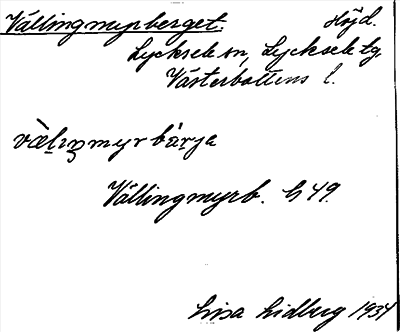 Vällingmyrberget. Höjd.
Lycksele sn, Lycksele tg.
Västerbottens l.
vȁlıŋmyrbärja
Vällingmyrb. G 49.
Lisa Lidberg 1934